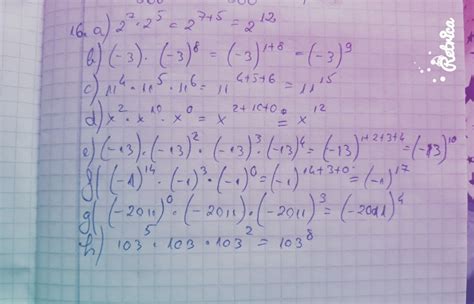 16. a) 2⁷ · 2⁵ = 2⁷⁺⁵ = 2¹²
b) (-3) · (-3)⁸ = (-3)¹⁺⁸ = (-3)⁹
c) 11⁴ · 11⁵ · 11⁶ = 11⁴⁺⁵⁺⁶ = 11¹⁵
d) x² · x¹⁰ · x⁰ = x²⁺¹⁰⁺⁰ = x¹²
e) (-13) · (-13)² · (-13)³ · (-13)⁴ = (-13)¹⁺²⁺³⁺⁴ = (-13)¹⁰
f) (-1)¹⁴ · (-1)³ · (-1)⁰ = (-1)¹⁴⁺³⁺⁰ = (-1)¹⁷
g) (-2011)⁰ · (-2011) · (-2011)³ = (-2011)⁴
h) 103⁵ · 103 · 103² = 103⁸
Retrica